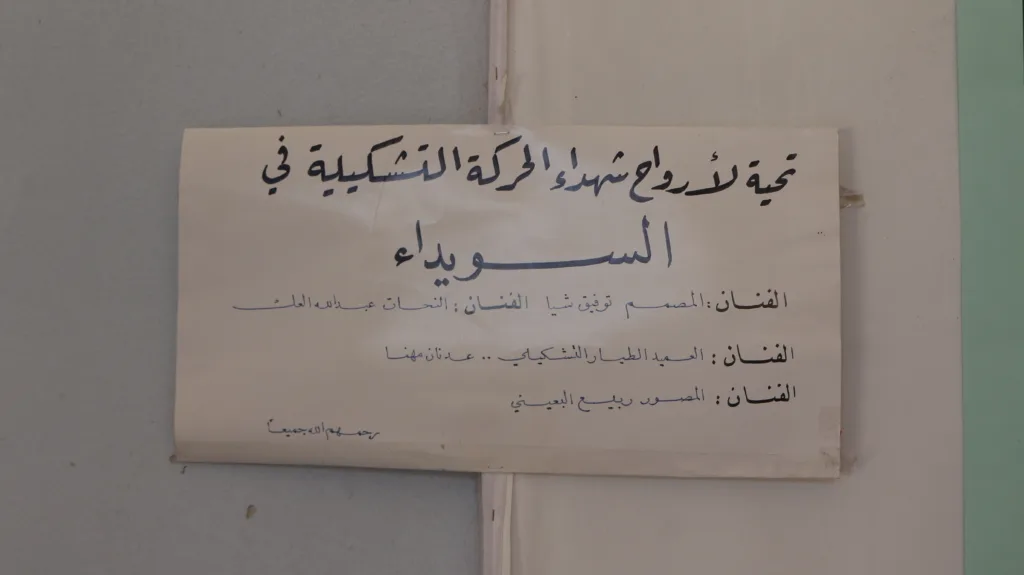 تحية لأرواح شهداء الحركة التشكيلية في
السويداء
الفنان : المصمم توفيق شيا الفنان : النحات عبدالله العك
الفنان : العميد الطيار التشكيلي .. عدنان مهنا
الفنان : المصور ربيع البعيني
رحمهم الله جميعاً